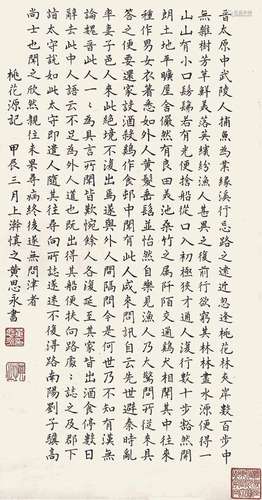 晉太原中武陵人捕魚為業緣溪行忘路之遠近忽逢桃花林夾岸數百步中
無雜樹芳草鮮美落英繽紛漁人甚異之復前行欲窮其林林盡水源便得一
山山有小口髣髴若有光便捨船從口入初極狹才通人復行數十步豁然開
朗土地平曠屋舍儼然有良田美池桑竹之屬阡陌交通雞犬相聞其中往來
種作男女衣著悉如外人黃髮垂髫並怡然自樂見漁人乃大驚問所從來具
答之便要還家設酒殺雞作食邨中聞有此人咸來問訊自云先世避秦時亂
率妻子邑人來此絕境不復出焉遂與外人間隔問今是何世乃不知有漢無
論魏晉此人一一為具言所聞皆歎惋餘人各復延至其家皆出酒食停數日
辭去此中人語云不足為外人道也既出得其船便扶向路處處誌之及郡下
詣太守說如此太守即遣人隨其往尋向所誌遂迷不復得路南陽劉子驥高
尚士也聞之欣然親往未果尋病終後遂無問津者
桃花源記 甲辰三月上澣慎之黃思永書